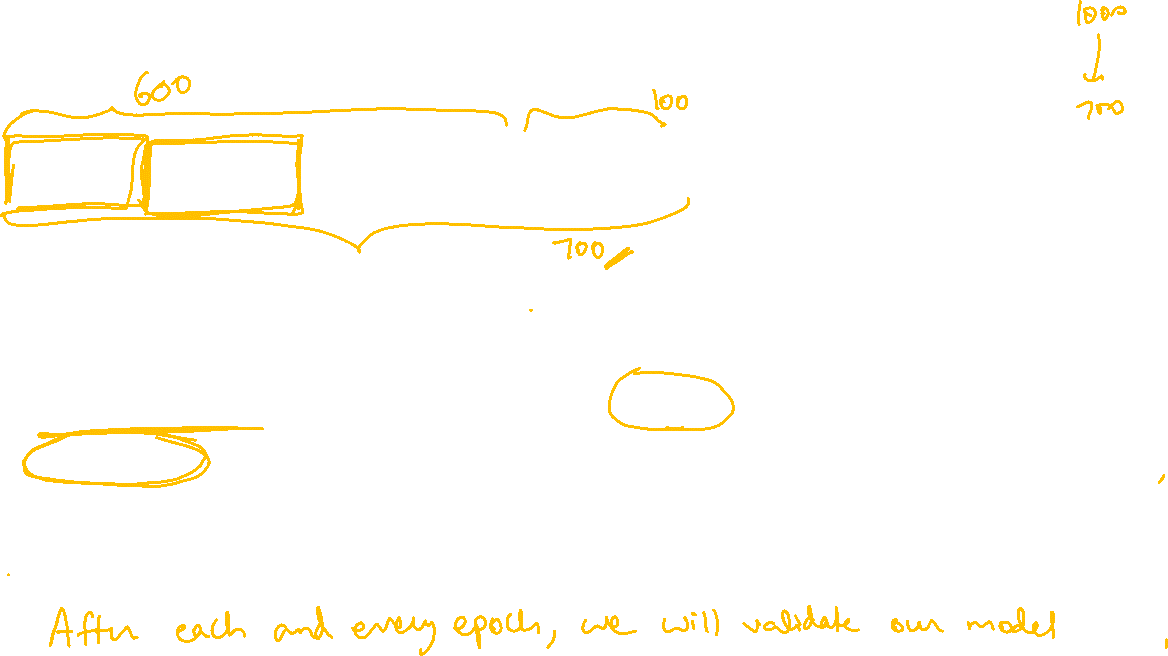 1000
600
100
700
700
After each and every epoch, we will validate our model